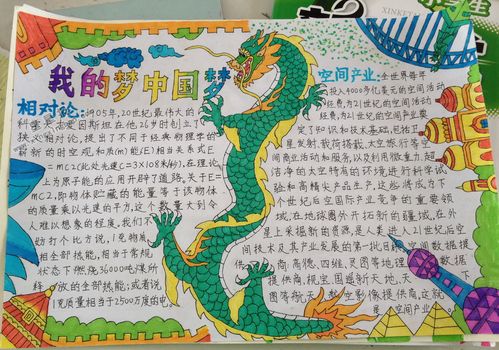 我的梦中国梦
相对论:1905年,20世纪最伟大的
科学天才爱因斯坦在他26岁时创立了
狭义相对论,提出了不同于经典物理学的
崭新的时空观,和质(m)能(E)相当关系式E
=mC2(此处光速C=3X108米/秒),在理论
上为原子能的应用开辟了道路,关于E=
mC2,即物体贮藏的能量等于该物体
的质量乘以光速的平方,这个数量大到令
人难以想象的程度,我们不
妨打个比方说,1克物质
相全部热能,相当于常规
状态下燃烧36000吨煤所
释放的全部热能;或者说
1克质量相当于2500万度的电
空间产业:全世界每年
投入4000多亿美元的空间活动
经费,为21世纪的空间活动
经费,为21世纪的空间产业奠
定了知识和技术基础,
星发射,我荷搭载,太空旅行等空
间商业活动和服务,以及利用微重力,超
洁净的太空特有的环境进行科学试
验和高精尖产品生产,这些将成为下
个世纪后空国际产业竞争的重要领
域,在地球圈外开拓新的疆域,在外
星上采掘新的资源,是人类进入21世纪后空
间技术及其产业发展的第一批目标,空间数据提
供商:高德、四维、灵图等地理
提供商,视宝、国遥新天地、天下
图等航天 航空影像提供商,这就
是空间产业
XINKE